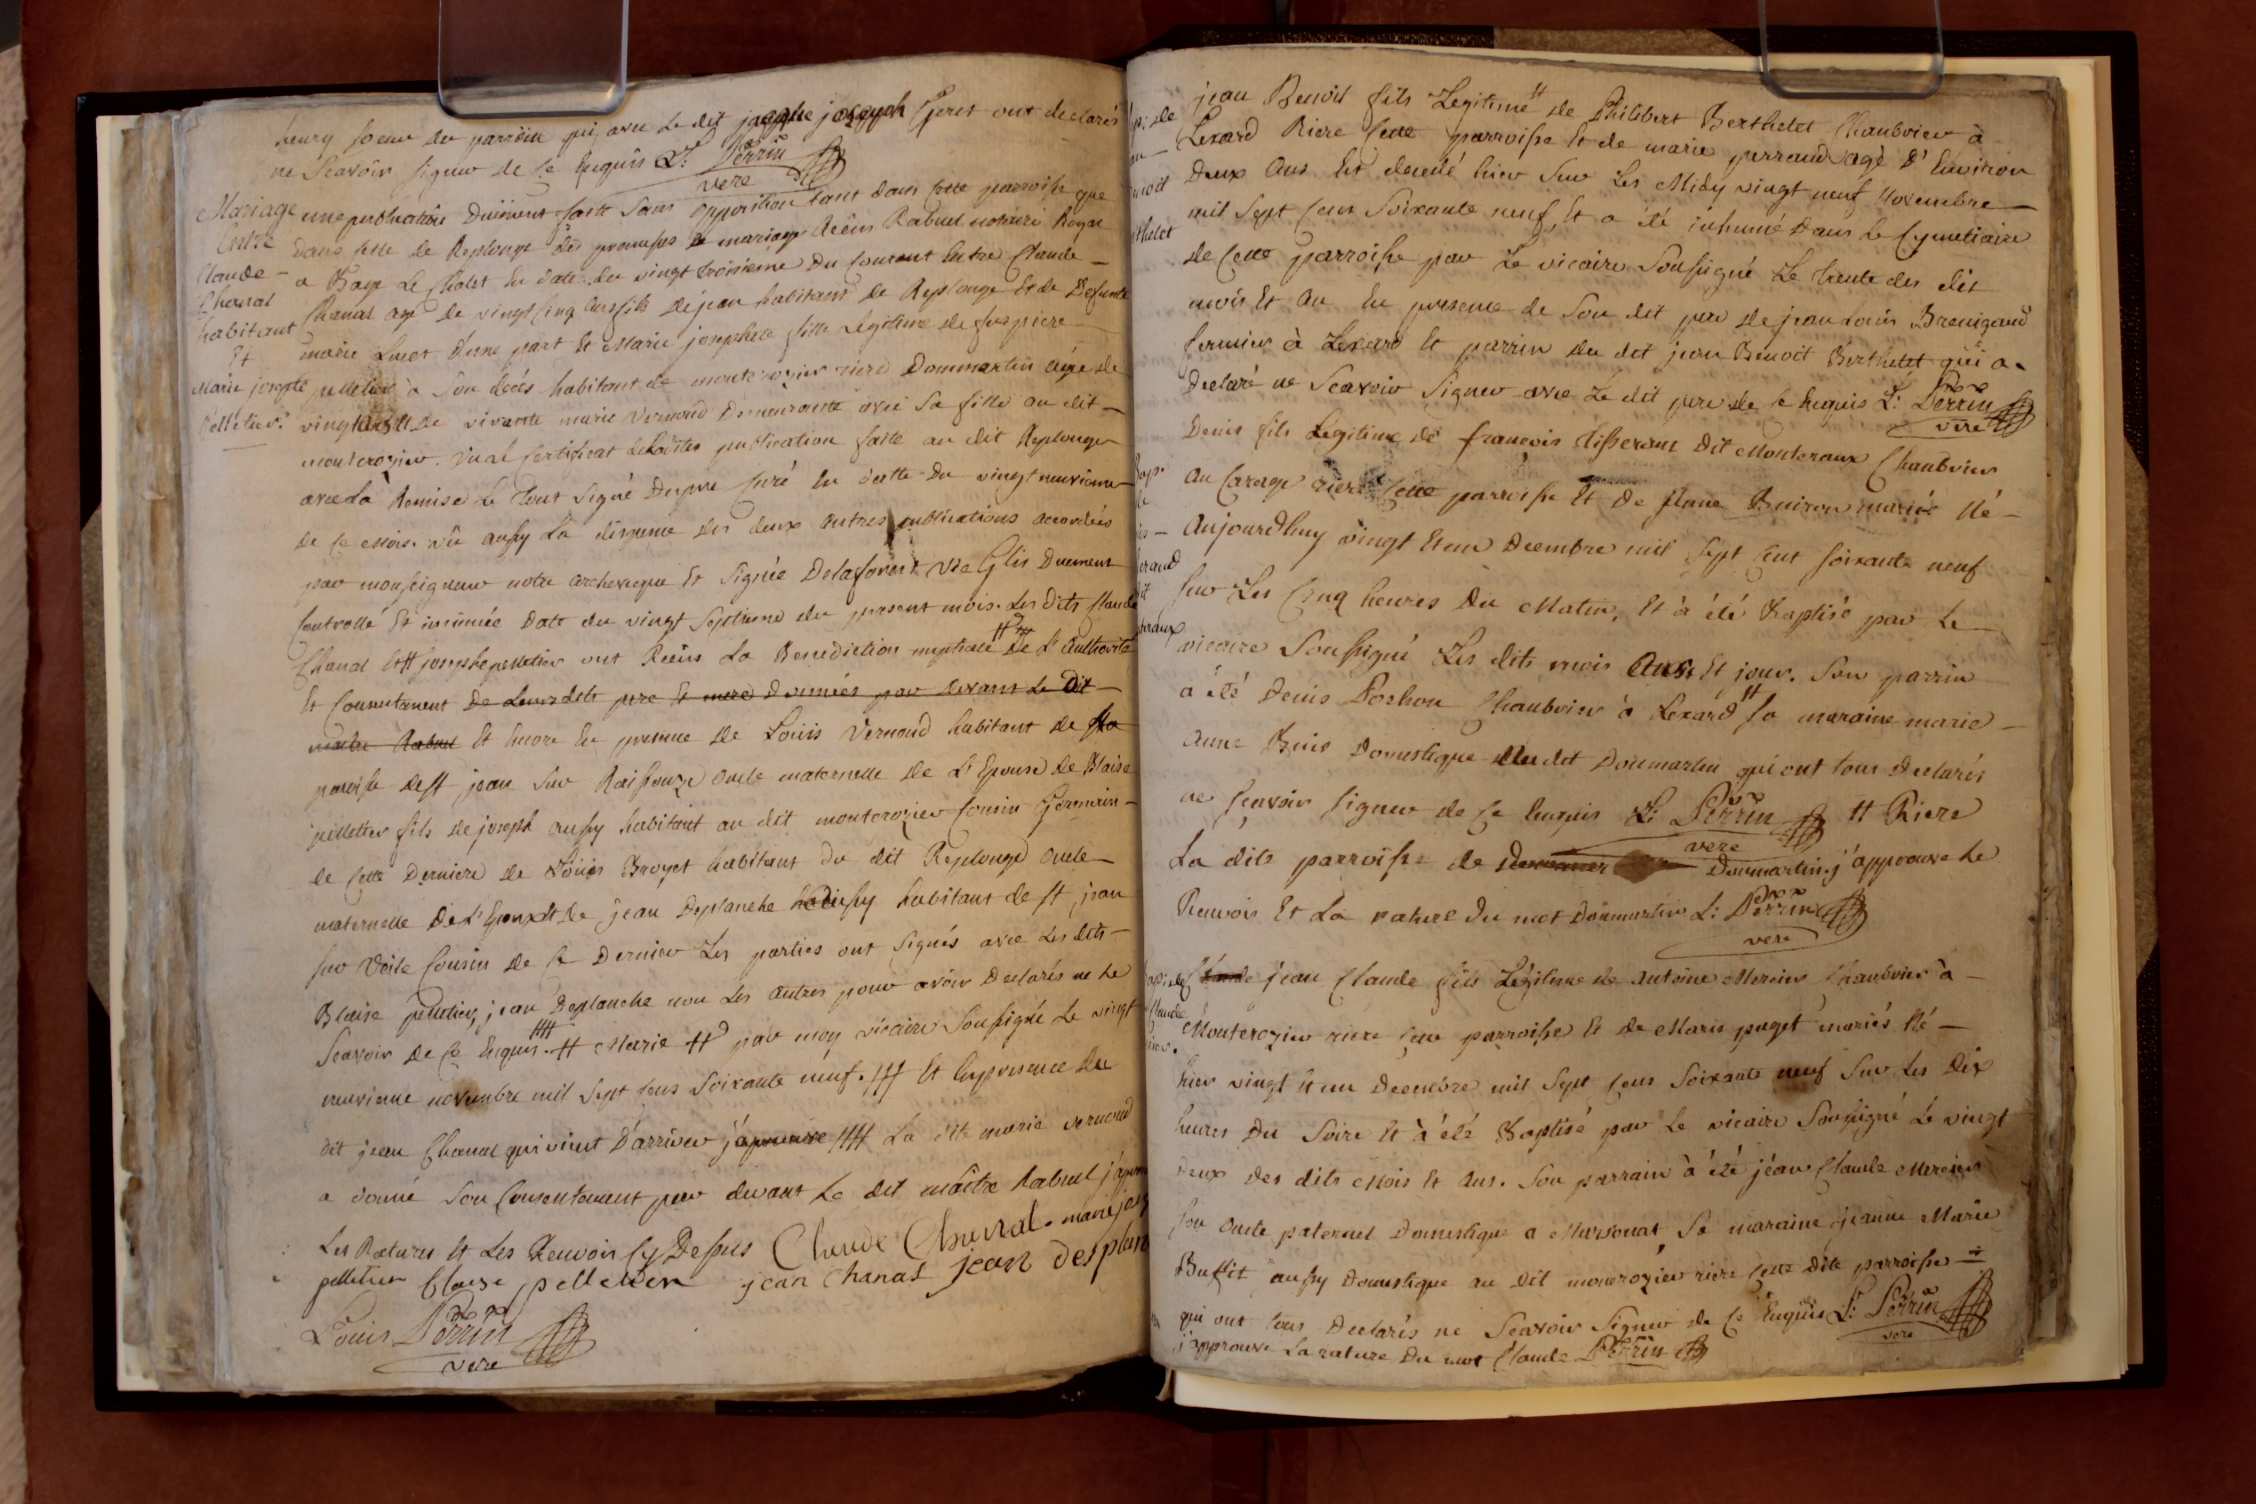 henry soeur du parrein qui avec le dit josephe joseph Geret ont declarés
ne Scavoir signer de ce Enquis L: Perrin
vere
Mariage
Entre
Claude
Chanal
habitant
Et
Marie josephte
Pelletier
une publication Duement faite Sans opposition tant Dans cette parroisse que
dans celle de Replonge Les promesses de mariage Recûës Rabuel notaire Royal
a Bage Le Chatel En date du vingt troisieme Du Courant Entre Claude
Chanal age de vingt cinq ans fils de jean habitant de Replonge Et de Defunte
marie Lucet D'une part Et Marie josephte fille Legitime de fus pierre
pelletier à Son décés habitant de montcrozier riere Dommartin agée de
de vivante marie Vernoud Demeurante avec Sa fille au dit
montcrozier. Vu Le Certificat de publication faite au dit Replonge
avec La Remise Le tout Signé Dupre Curé En datte Du vingt neuvieme
de ce mois. vû aussy La dispense des deux autres publications accordées
par monseigneur notre archeveque Et Signée Delaforest Vic Glis Duement
Controllé Et insinuée Date du vingt Septieme du present mois. Les dits Claude
Chanal Et # josephte pelletier ont Recûs La Benediction nuptiale # De L'authorité
Et Consentement De Leurs dits pere Et mere Donnés par devant Le Dit
maitre Rabuel Et Encore En presence de Loüis Vernoud habitant de La
paroisse de St jean Sur Raissouze oncle maternelle de L'Epouse de Blaise
pelletier fils de joseph aussy habitant au dit montcrozier Cousin Germain
de cette Derniere de Loüis Broyet habitant Du dit Replonge oncle
maternelle De L'Epoux Et de jean Deplanche aussy habitant de St jean
sur Veile Cousin de ce Dernier Les parties ont Signés avec Les dits
Blaise pelletier, jean Deplanche non Les autres pour avoir Declarés ne Le
Scavoir de ce Enquis. # Marie # par moy vicaire Soussigné Le vingt
neuvieme novembre mil Sept Cens Soixante neuf. ### Et En presence du
dit jean Chanal qui vient D'arriver j'approuve #### La dite marie vernoud
a donné Son Consentement par devant Le dit maître Rabuel
Les Ratures Et Les Renvois Cy Dessus Claude Chanal. marie
pelletier blaise pelletier jean Chanal jean desplan
Louis Perrin
vere
jean Benoit fils Legitime de Philibert Berthelet Chanbrier à
Lexard Riere cette parroisse Et de marie perraud agé D'Environ
Deux Ans Est decedé hier Sur Les Midy vingt neuf Novembre
mil Sept Cens Soixante neuf Et a été inhumé Dans Le Cymetiaire
de cette parroisse par Le vicaire Soussigné Le trente des dit
mois Et an En presence de Son dit pere de jean Louis Brevigaud
fermier à Lexard Et parrin du dit jean Benoit Berthelet qui a
Declaré ne Scavoir Signer avec Le dit pere de ce Enquis L: Perrin
vere
Denis fils Legitime de françois tisserant Dit Monteraux Chanbrier
au Carage riere Cette parroisse Et De jeanne Buiron mariés Né
Aujourdhuy vingt Et un Decembre mil Sept Cent Soixante neuf
sur Les Cinq heures Du Matin, Et à été Baptisé par Le
vicaire Soussigné Les dits mois Ans Et jour. Son parrin
a été Denis Pochon Chanbrier à Lexard # Sa maraine marie
anne Buis Domestique au dit Donmartin qui ont tous Declarés
ne Sçavoir Signer de ce Enquis L: Perrin # Riere
vere
La dite parroisse de Donmartin. j'approuve Le
Renvois Et La rature Du mot Donmartin L: Perrin
vere
Claude jean Claude fils Légitime de Antoine Mercier Chanbrier à
Montcrozier riere Cette parroisse Et de Marie puget mariés Né
hier vingt Et un Decembre mil Sept Cens Soixante neuf Sur Les Dix
heures Du Soire Et à été Baptisé par Le vicaire Soussigné Le vingt
deux des dits Mois Et Ans. Son parrain à été jean Claude Mercier
son oncle paternel Domestique a Marsonat, Sa maraine jeanne Marie
Buffit aussy Domestique au dit moncrozier riere cette dite parroisse
qui ont tous Declarés ne Scavoir Signer de ce Enquis L: Perrin
vere
j'approuve La rature Du mot Claude Perrin